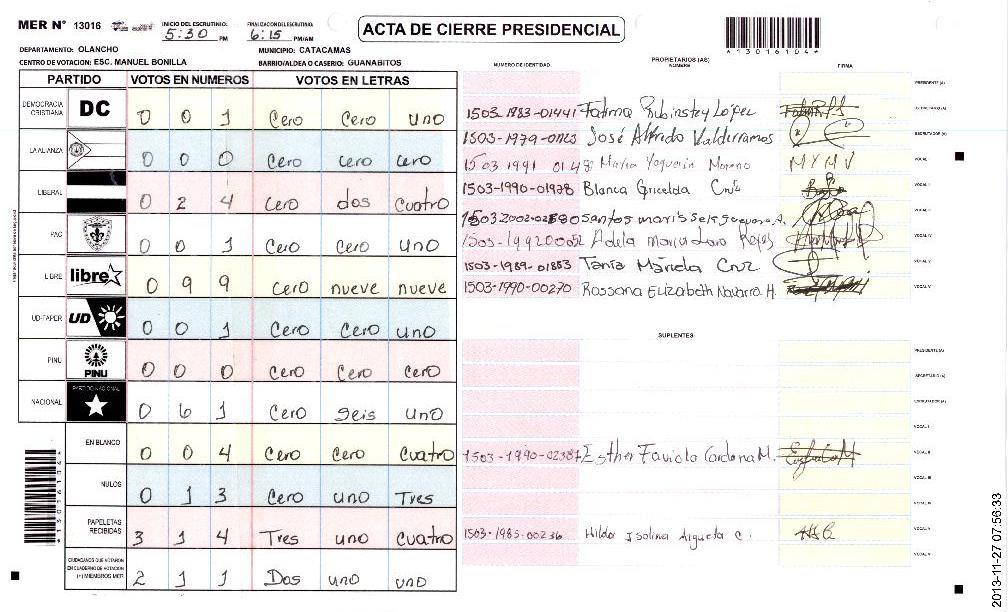 MER N° 13016 INICIO DEL ESCRUTINIO: 5:30 PM FINALIZACION DEL ESCRUTINIO: 6:15 PM/AM
ACTA DE CIERRE PRESIDENCIAL
*13016104*
DEPARTAMENTO: OLANCHO MUNICIPIO: CATACAMAS
CENTRO DE VOTACION: ESC. MANUEL BONILLA BARRIO/ALDEA O CASERIO: GUANABITOS
PARTIDO VOTOS EN NUMEROS VOTOS EN LETRAS
DEMOCRACIA CRISTIANA DC 0 0 1 Cero Cero uno
LA ALIANZA 0 0 0 Cero cero cero
LIBERAL 0 2 4 cero dos cuatro
PAC 0 0 1 Cero cero uno
LIBRE libre 0 9 9 cero nueve nueve
UD-FAPER UD 0 0 1 Cero Cero uno
PINU PINU 0 0 0 Cero Cero Cero
NACIONAL PARTIDO NACIONAL 0 6 1 Cero Seis uno
EN BLANCO 0 0 4 Cero Cero Cuatro
NULOS 0 1 3 Cero uno Tres
PAPELETAS RECIBIDAS 3 1 4 Tres uno Cuatro
CIUDADANOS QUE VOTARON EN CUADERNO DE VOTACION (+) MIEMBROS MER 2 1 1 Dos uno uno
NUMERO DE IDENTIDAD PROPIETARIOS (AS) NOMBRE FIRMA
PRESIDENTE (A)
1503-1983-01441 Fatima Rubinstey López SECRETARIO (A)
1503-1979-01123 José Alfredo Valderramos ESCRUTADOR (A)
1503 1991 Maria Yoquerin Moreno M Y M V VOCAL I
1503-1990-01978 Blanca Gricelda Cruz VOCAL II
Santos VOCAL III
Adela Maria Lara Reyes VOCAL IV
1503-1989-01883 Tania Mariela Cruz VOCAL V
1503-1990-00270 Rossana Elizabeth Navarro H. VOCAL VI
SUPLENTES
PRESIDENTE (A)
SECRETARIO (A)
ESCRUTADOR (A)
VOCAL I
1503-1990-02387 Esther Faviola Cardona M. VOCAL II
VOCAL III
VOCAL IV
1503-1985-00236 Hilda Isolina Argueta C. VOCAL V
VOCAL VI
*13016104*
2013-11-27 07:56:33